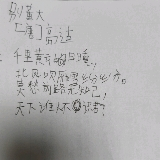 别董大
[唐]高适
千里黄云白日曛，
北风吹雁雪纷纷。
莫愁前路无知己，
天下谁人不识君？